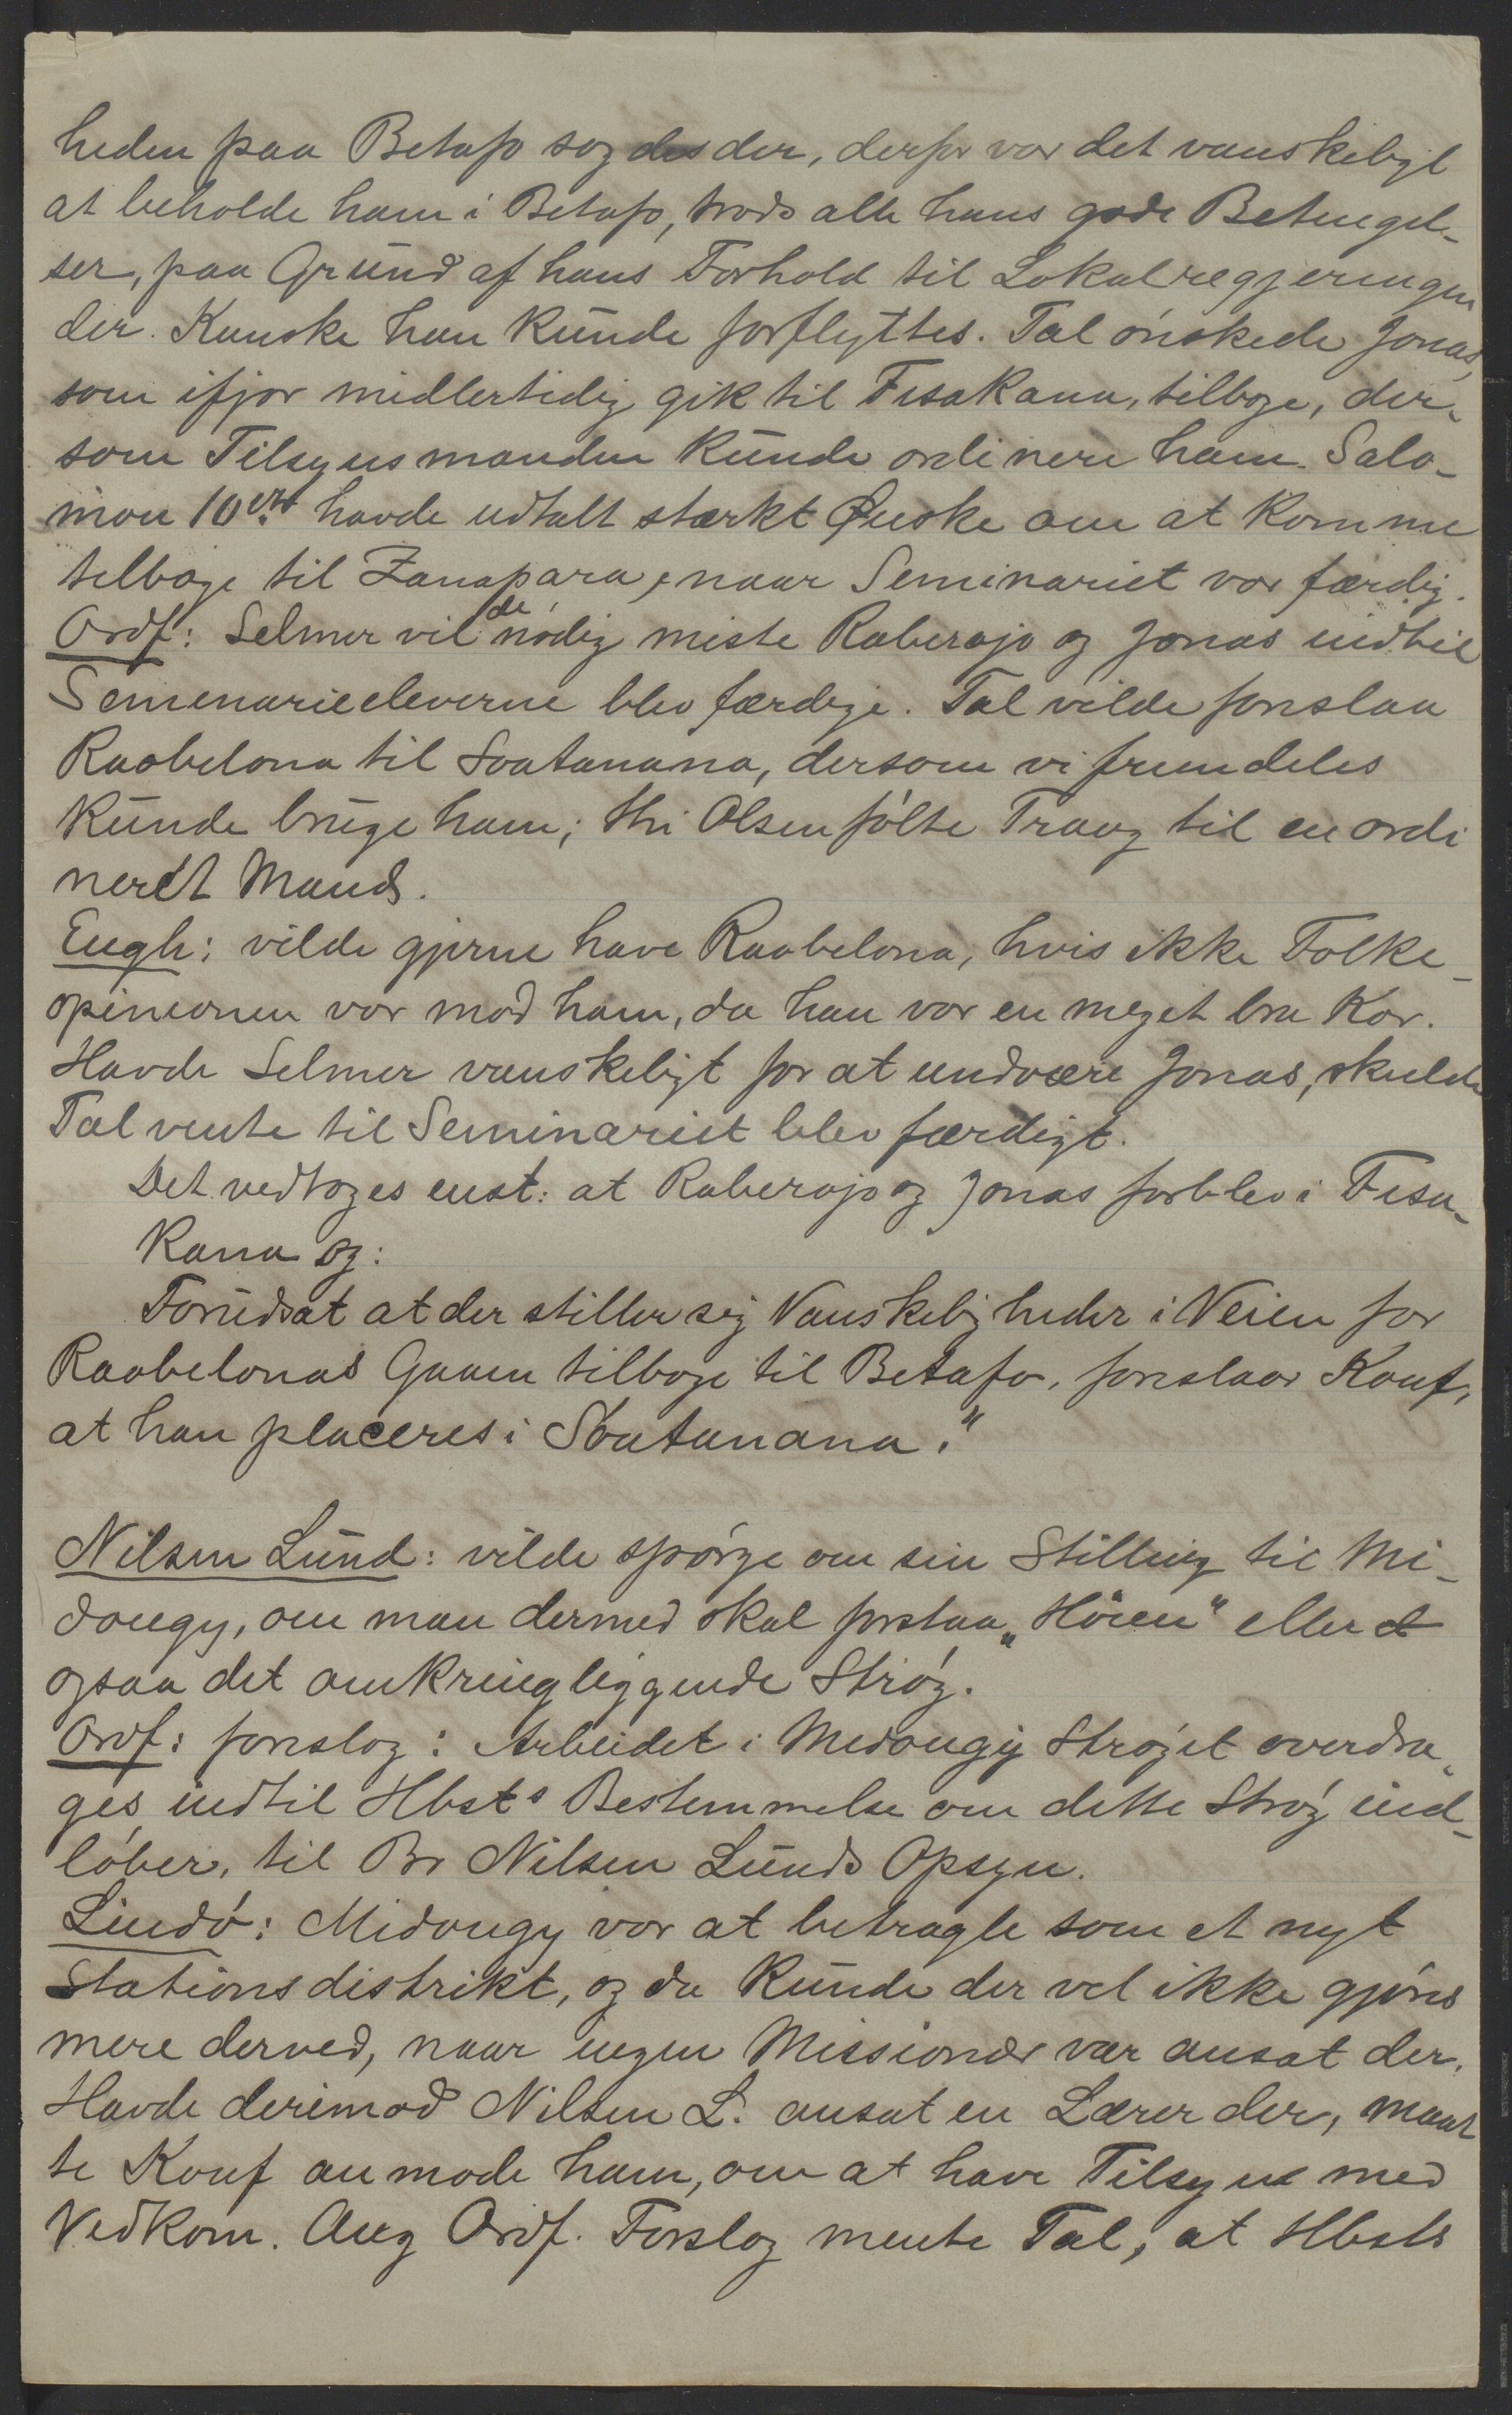 heden paa Betafo sogdes der, derfor var det vanskeligt
at beholde ham i Betafo, trods alle hans gode Betingel-
ser, paa Grund af hans Forhold til Lokalregjeringen
der. Kanske han kunde forflyttes. Tal ønskede Jonas,
som ifjor midlertidig gik til Fisakana, tilbage, der-
som Tilsynsmanden kunde ordinere ham. Salo-
mon 10 havde udtalt stærkt Ønske om at komme
tilbage til Zanapara, naar Seminariet var færdig.
Ordf: Selmer vilde nødig miste Raberojo og Jonas indtil
Seminarieeleverne blev færdige. Tal vilde foreslaa
Raobelona til Soatanana, dersom vi fremdeles
kunde bruge ham; thi Olsen følte Trang til en ordi
neret Mand.
Engh: vilde gjerne have Raobelona, hvis ikke Folke-
opinionen var mod ham, da han var en meget bra Kar.
Havde Selmer vanskeligt for at undvære Jonas, skulde
Tal vente til Seminariet blev færdigt.
Det vedtoges enst: at Raberojo og Jonas forblev i Fisa-
kana og:
Forudsat at der stiller sig Vanskeligheder i Veien for
Raobelonas Gaaen tilbage til Betafo, foreslaar Konf,
at han placeres i Soatanana."
Nilsen Lund: vilde spørge om sin Stilling til Mi-
dongy, om man dermed skal forstaa „Høien" eller
ogsaa det omkringliggende Strøg.
Ordf: foreslog: Arbeidet i Midongy Strøget overdra-
ges, indtil Hbsts Bestemmelse om dette Strøg ind-
løber, til Br Nilsen Lunds Opsyn.
Lindø: Midongy var at betragte som et nyt
Stationsdistrikt, og da kunde der vel ikke gjøres
mere derved, naar ingen Missionær var ansat der.
Havde derimod Nilsen L. ansat en Lærer der, maat
te Konf anmode ham, om at have Tilsyn med
Vedkom. Ang Ordf. Forslag mente Tal, at Hbsts